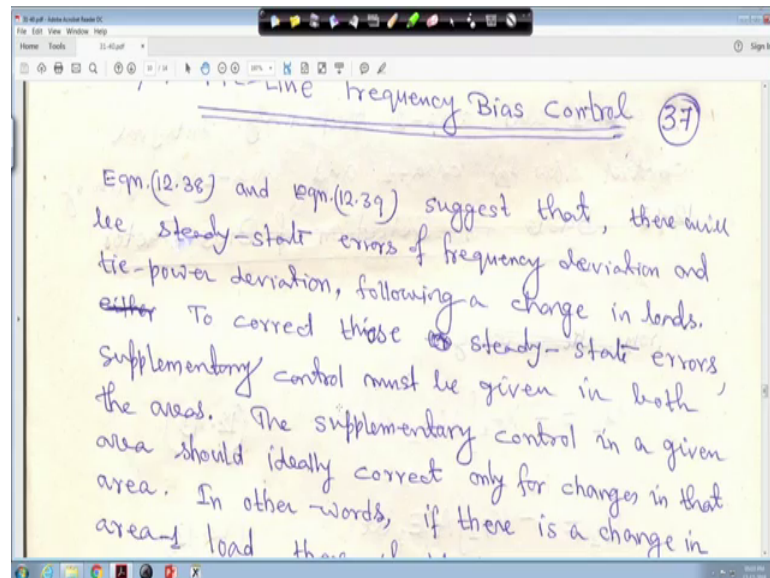 31-40.pdf - Adobe Acrobat Reader DC
File Edit View Window Help
Home Tools 31-40.pdf × Sign In
Line Frequency Bias Control 37
Eqn.(12.38) and Eqn.(12.39) suggest that, there will
be steady-state errors of frequency deviation and
tie-power deviation, following a change in loads.
To correct these steady-state errors,
supplementary control must be given in both
the areas. The supplementary control in a given
area should ideally correct only for changes in that
area. In other-words, if there is a change in
area-1 load